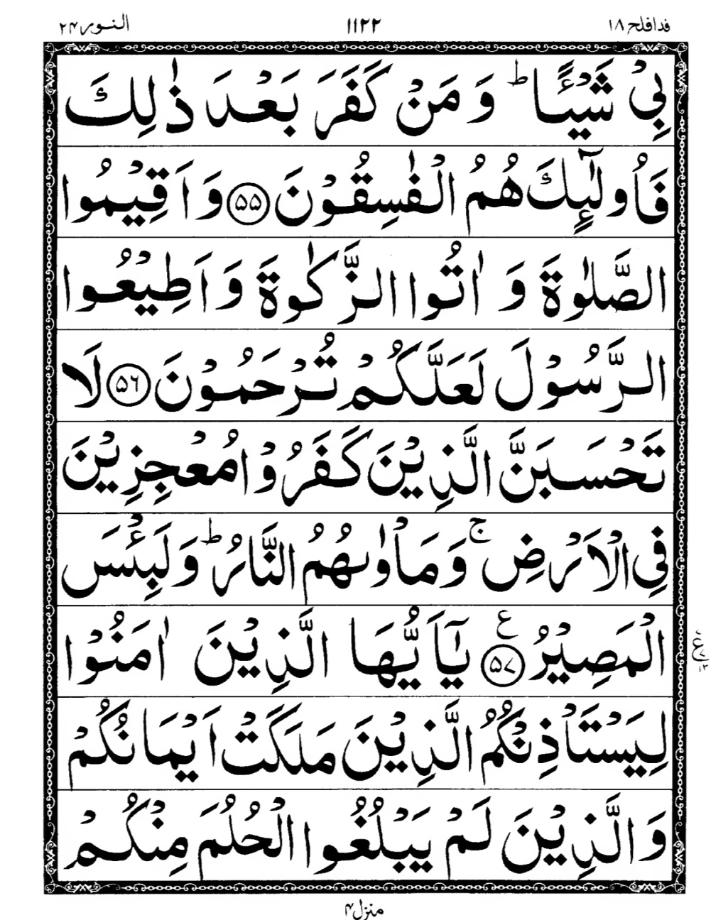 قدافلح ١٨ ١١٢٢ النور ٢٤
بِیْ شَیْـًٔا ؕ وَ مَنْ كَفَرَ بَعْدَ ذٰلِكَ
فَاُولٰٓىِٕكَ هُمُ الْفٰسِقُوْنَ ﴿۵۵﴾ وَ اَقِیْمُوا
الصَّلٰوةَ وَ اٰتُوا الزَّكٰوةَ وَ اَطِیْعُوا
الرَّسُوْلَ لَعَلَّكُمْ تُرْحَمُوْنَ ﴿۵۶﴾ لَا
تَحْسَبَنَّ الَّذِیْنَ كَفَرُوْا مُعْجِزِیْنَ
فِی الْاَرْضِ ۚ وَ مَاْوٰىهُمُ النَّارُ ؕ وَ لَبِئْسَ
الْمَصِیْرُ ﴿۵۷﴾ ع یٰۤاَیُّهَا الَّذِیْنَ اٰمَنُوْا
لِیَسْتَاْذِنْكُمُ الَّذِیْنَ مَلَكَتْ اَیْمَانُكُمْ
وَ الَّذِیْنَ لَمْ یَبْلُغُوا الْحُلُمَ مِنْكُمْ
منزل ۴